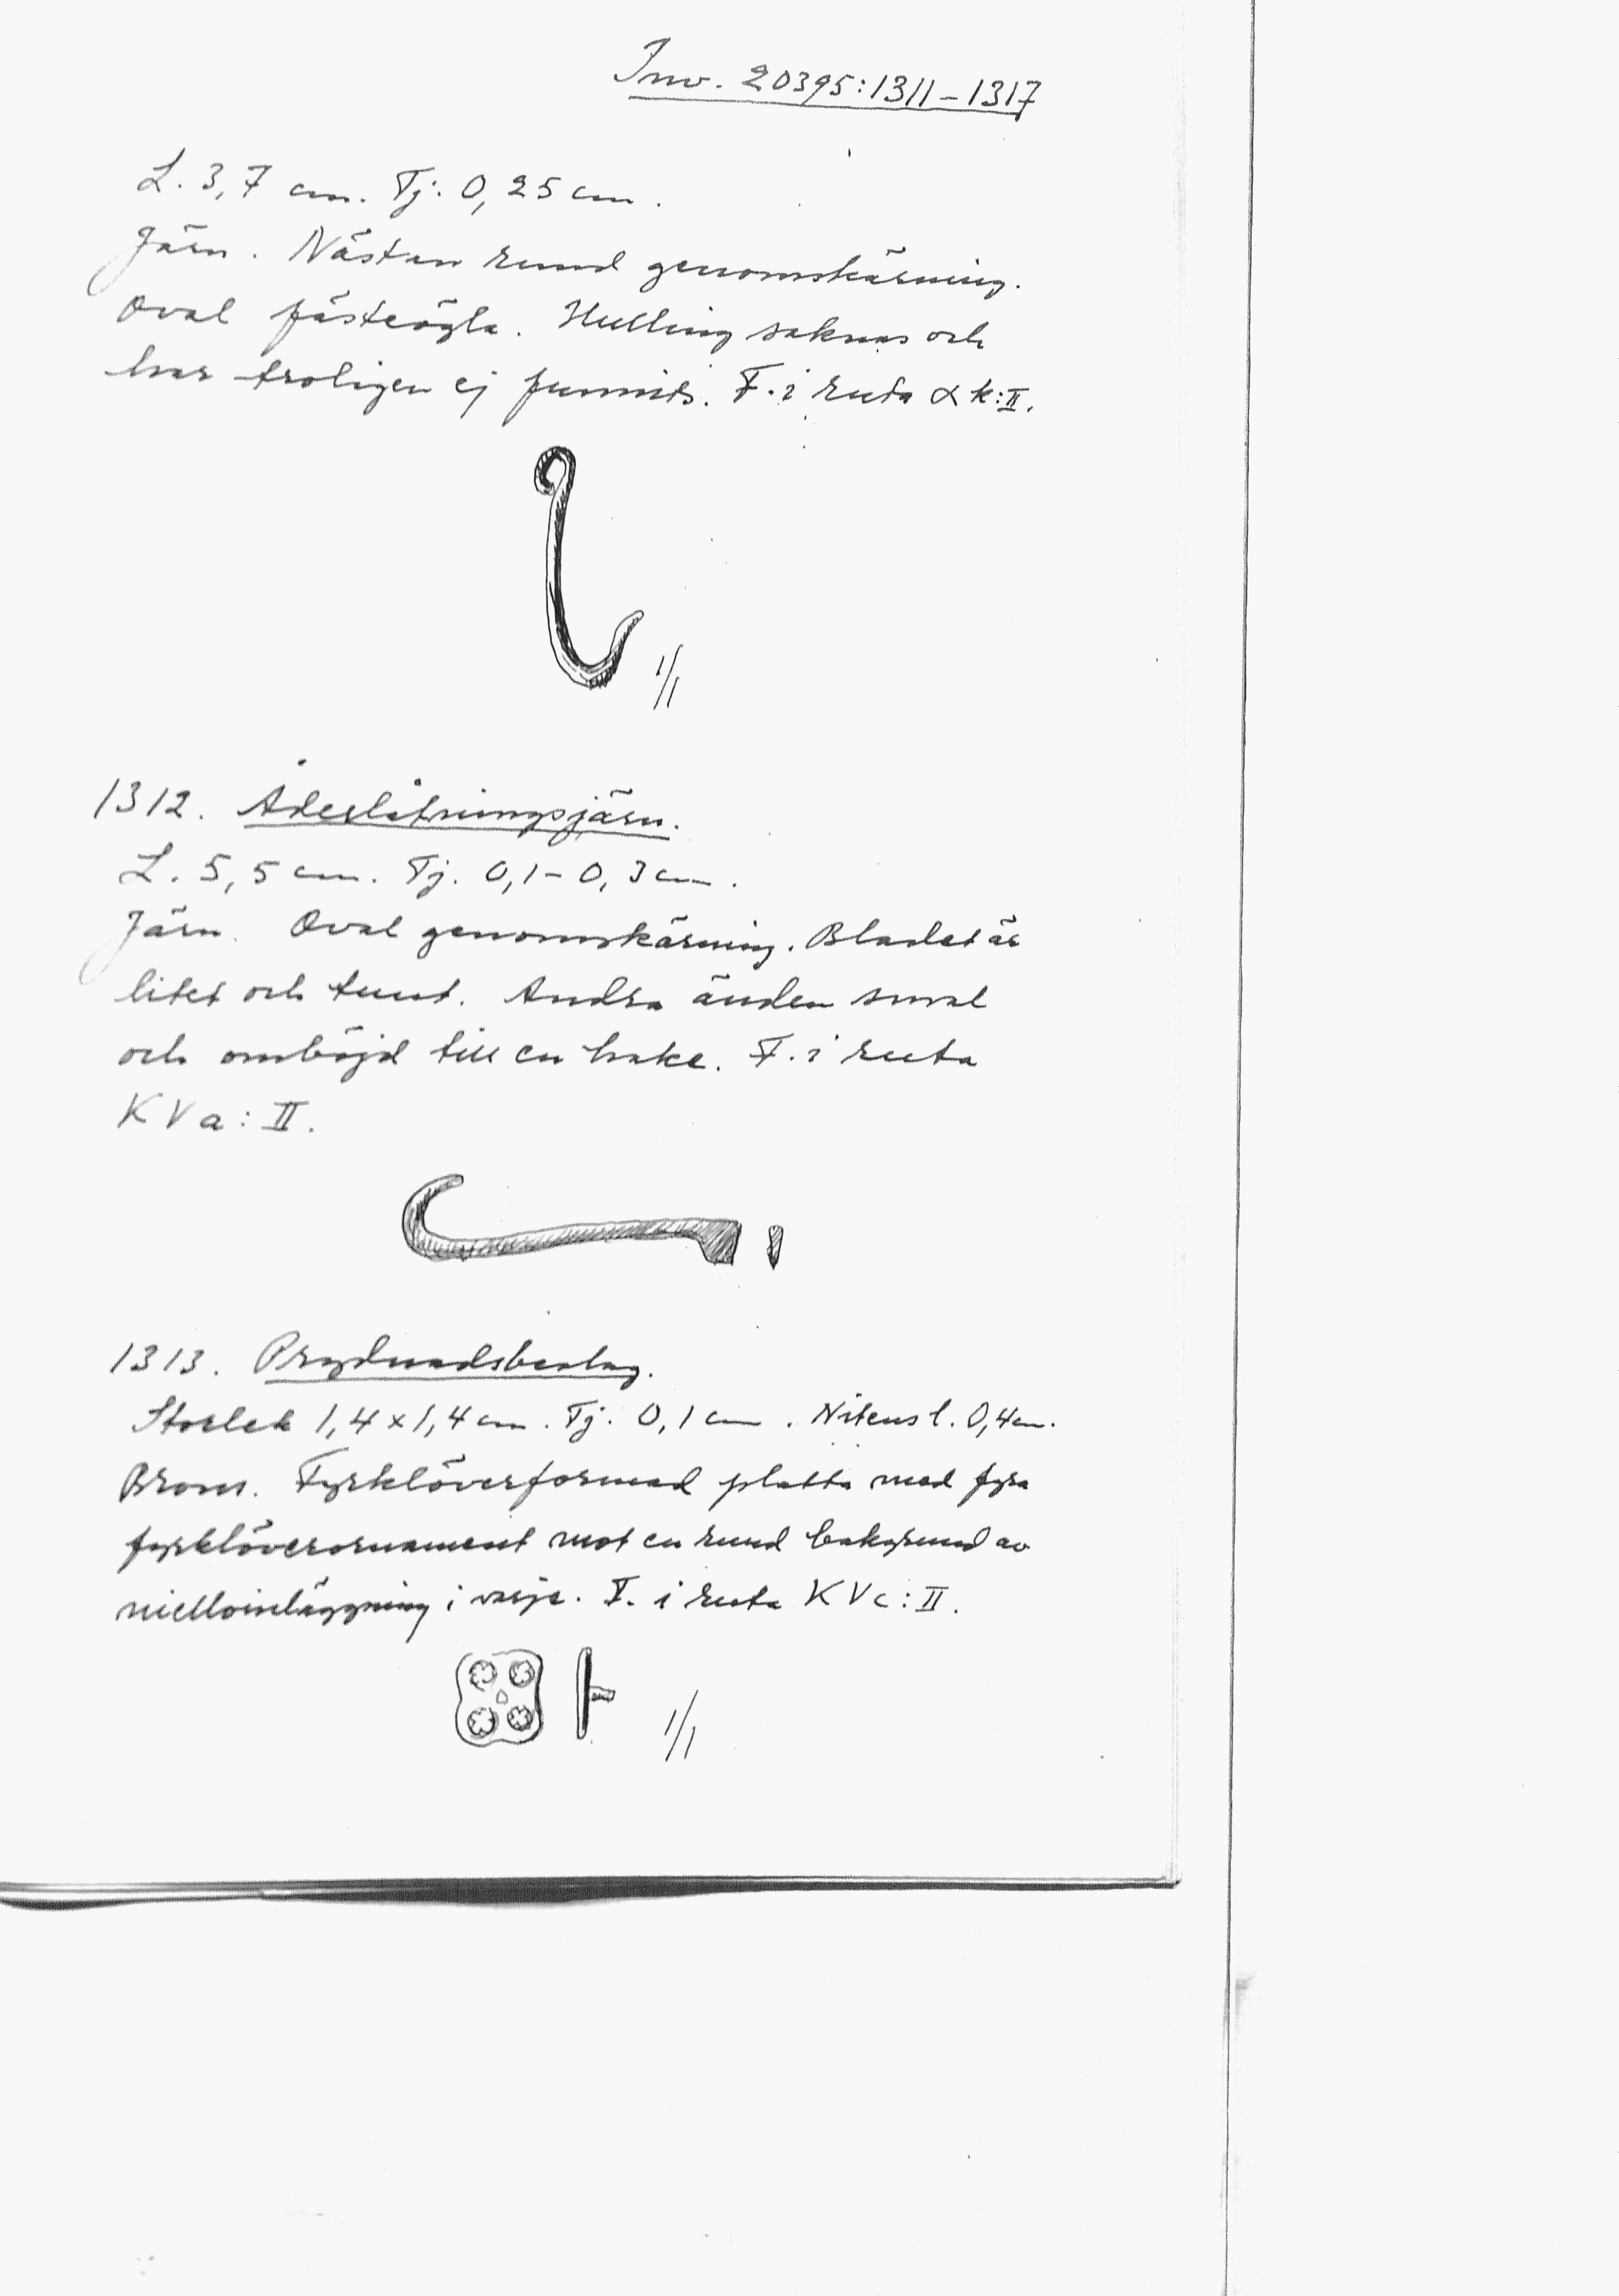 Inv. 20395:1311–1317
L. 3,7 cm. Tj. 0,25 cm.
Järn. Nästan rund genomskärning.
Oval fästeögla. Hulling saknas och
har troligen ej funnits. F. i ruta αk:II.
1/1
1312. Åderlåtningsjärn.
L. 5,5 cm. Tj. 0,1–0,3 cm.
Järn. Oval genomskärning. Bladet är
litet och tunt. Andra änden smal
och omböjd till en hake. F. i ruta
KVa:II.
1313. Prydnadsbeslag.
Storlek 1,4×1,4 cm. Tj. 0,1 cm. Nitens l. 0,4 cm.
Brons. Fyrklöverformad platta med fyra
fyrklöverornament mot en rund bakgrund av
nielloinläggning i varje. F. i ruta KVc:II.
1/1